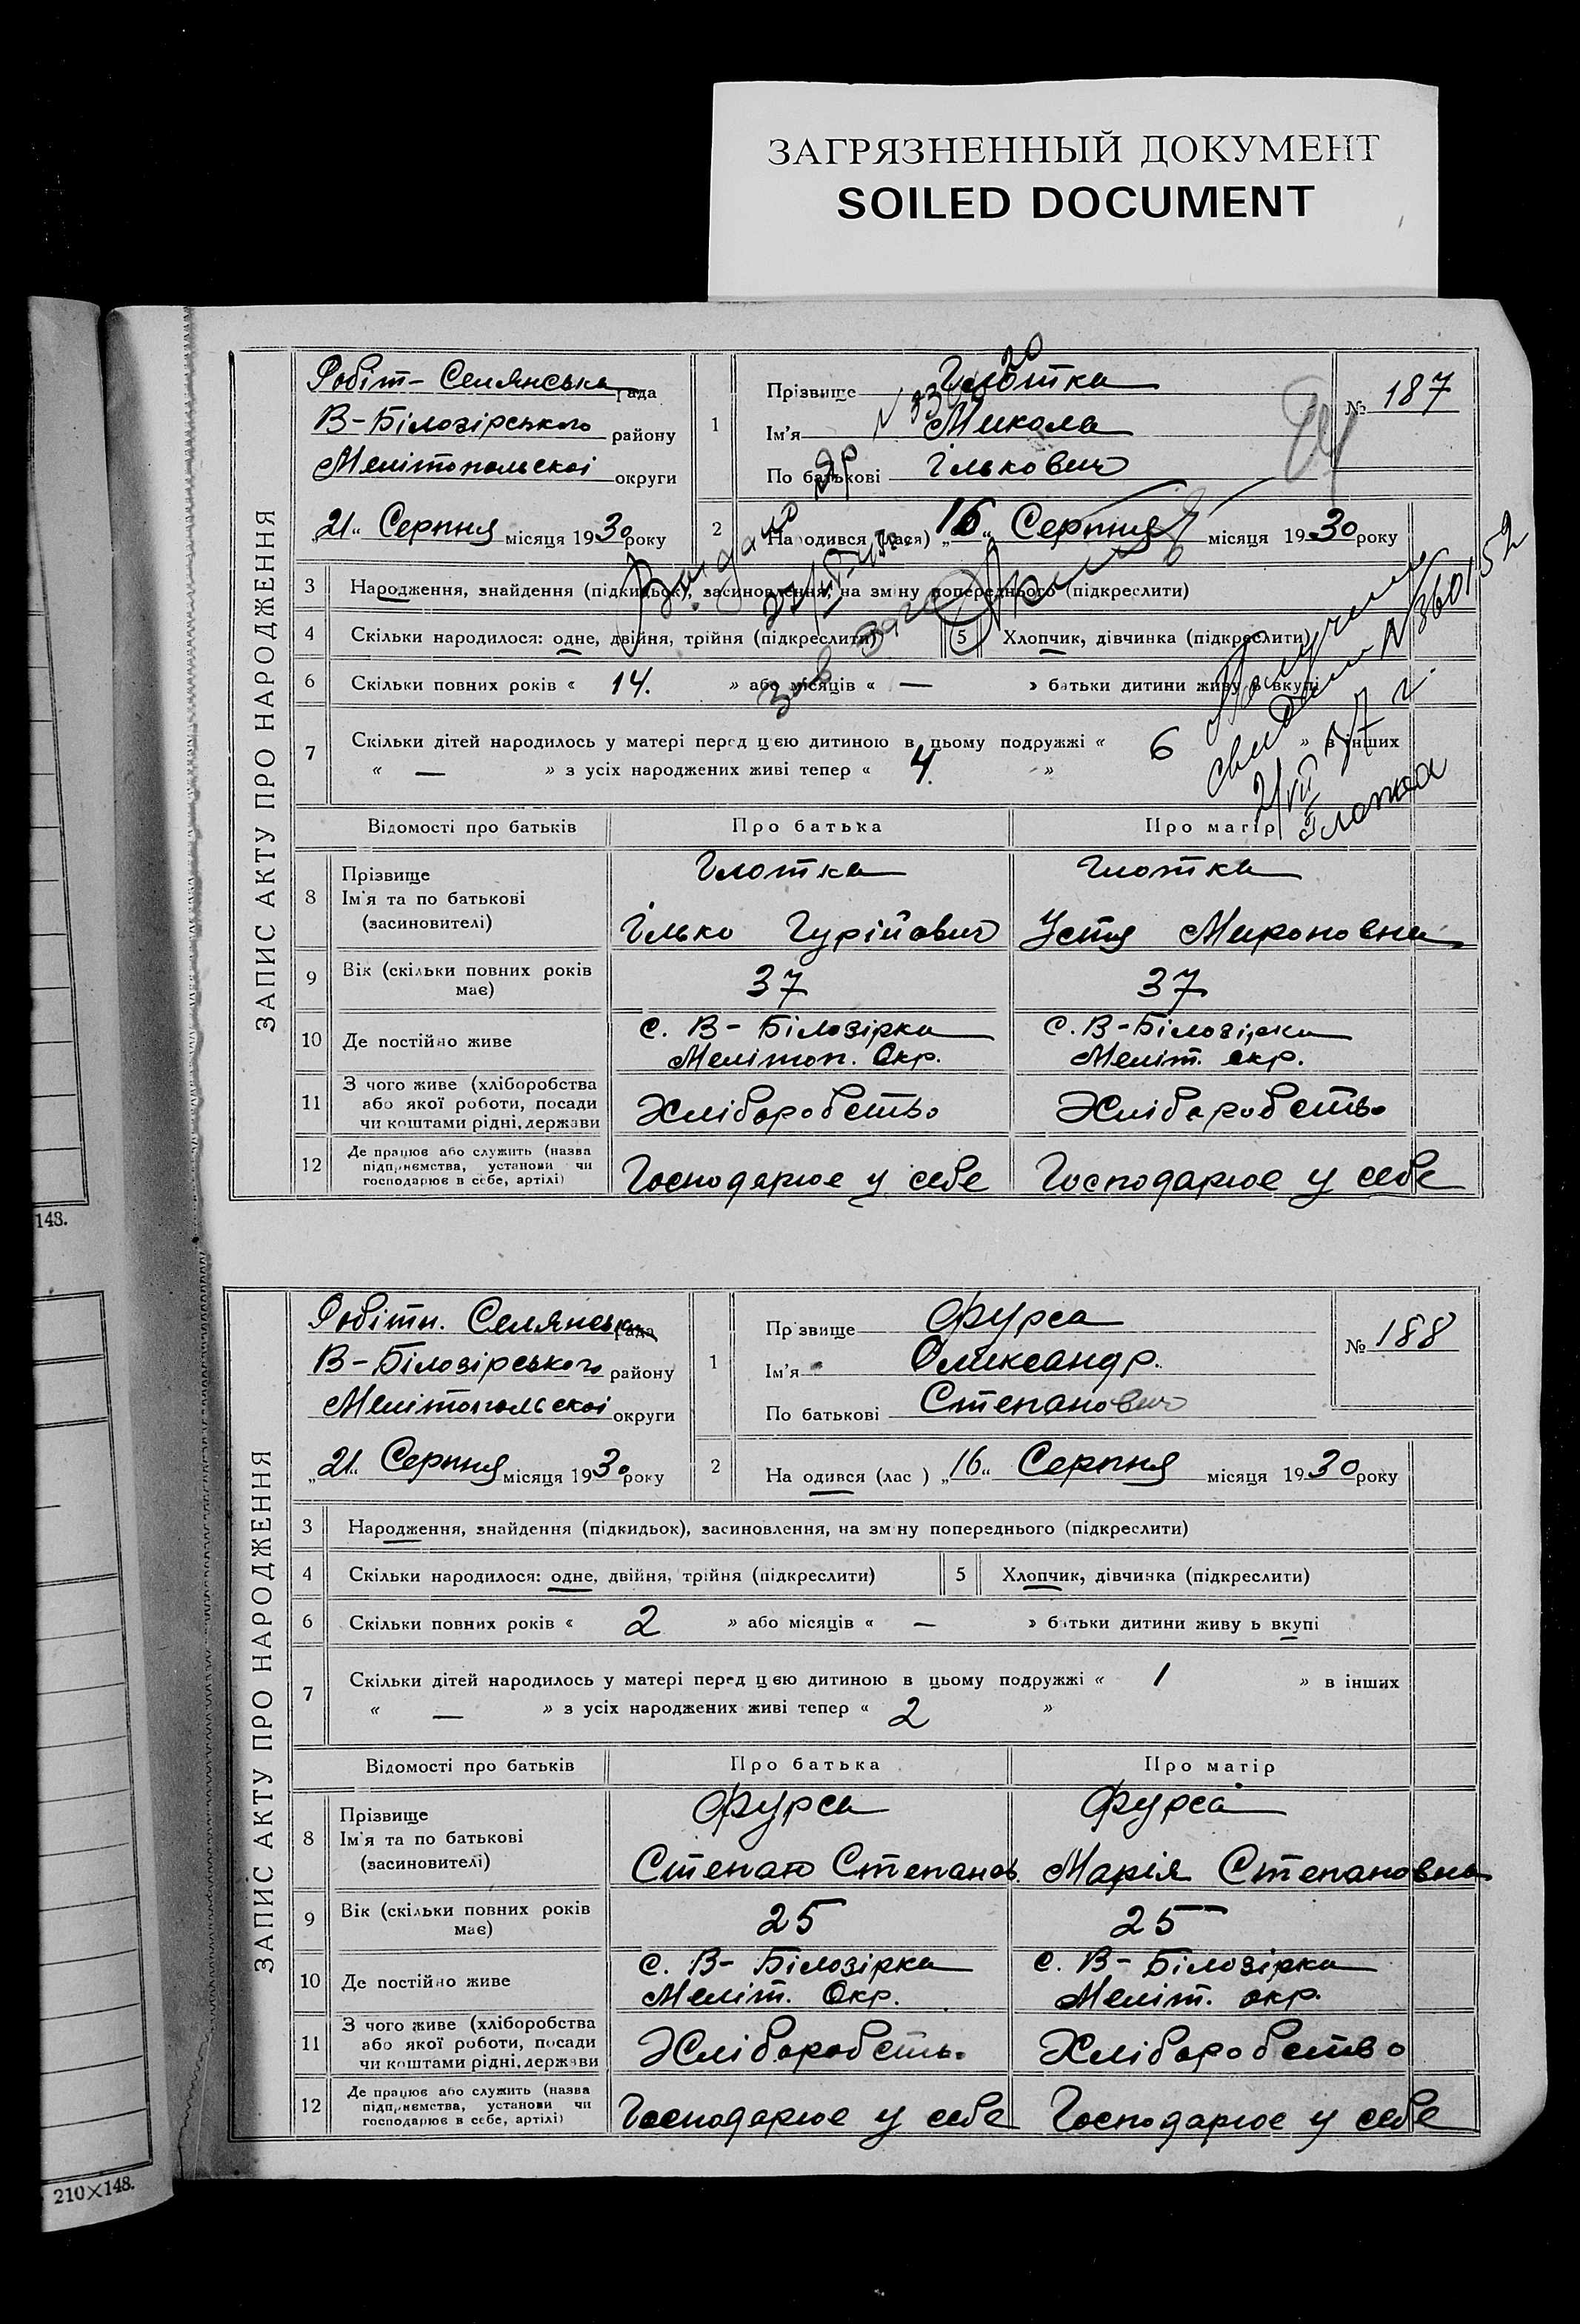 ЗАГРЯЗНЕННЫЙ ДОКУМЕНТ
SOILED DOCUMENT
ЗАПИС АКТУ ПРО НАРОДЖЕННЯ
Робіт-Селянська рада
В-Білозірського району
Мелітопольскоі округи
„21“ Серпня місяця 1930 року
1
Прізвище Глотка
Ім'я Микола
По батькові Ількович
№ 187
2
Народився (лася) „16“ Серпня місяця 1930 року
3 Народження, знайдення (підкидьок), засиновлення, на зміну попереднього (підкреслити)
4 Скільки народилося: одне, двійня, трійня (підкреслити) 5 Хлопчик, дівчинка (підкреслити)
6 Скільки повних років « 14. » або місяців « — » батьки дитини живуть вкупі
7 Скільки дітей народилось у матері перед цією дитиною в цьому подружжі « 6 » в інших
« — » з усіх народжених живі тепер « 4. »
Получены
свидет. № 360152
2/VII 37 г.
Глотка
Відомості про батьків Про батька Про матір
8 Прізвище Глотка Глотка
Ім'я та по батькові
(засиновителі) Ілько Гурійович Устя Мироновна
9 Вік (скільки повних років має) 37 37
10 Де постійно живе с. В-Білозірка с. В-Білозірка
Мелітоп. Окр. Меліт. окр.
11 З чого живе (хліборобства
або якої роботи, посади
чи коштами рідні, держави Хліборобство Хліборобство
12 Де працює або служить (назва
підприємства, установи чи
господарює в себе, артілі) Господарює у себе Господарює у себе
143.
ЗАПИС АКТУ ПРО НАРОДЖЕННЯ
Робітн. Селянська рада
В-Білозірського району
Мелітопольскоі округи
„21“ Серпня місяця 1930 року
1
Прізвище Фурса
Ім'я Олександр.
По батькові Степанович
№ 188
2
На одився (лас ) „16“ Серпня місяця 1930 року
3 Народження, знайдення (підкидьок), засиновлення, на зміну попереднього (підкреслити)
4 Скільки народилося: одне, двійня, трійня (підкреслити) 5 Хлопчик, дівчинка (підкреслити)
6 Скільки повних років « 2 » або місяців « — » батьки дитини живу ь вкупі
7 Скільки дітей народилось у матері перед цією дитиною в цьому подружжі « 1 » в інших
« — » з усіх народжених живі тепер « 2 »
Відомості про батьків Про батька Про матір
8 Прізвище Фурса Фурса
Ім'я та по батькові
(засиновителі) Степан Степанов. Марія Степановна
9 Вік (скільки повних років має) 25 25
10 Де постійно живе с. В-Білозірка с. В-Білозірка
Меліт. Окр. Меліт. окр.
11 З чого живе (хліборобства
або якої роботи, посади
чи коштами рідні, держави Хліборобство Хліборобство
12 Де працює або служить (назва
підприємства, установи чи
господарює в себе, артілі) Господарює у себе Господарює у себе
210×148.